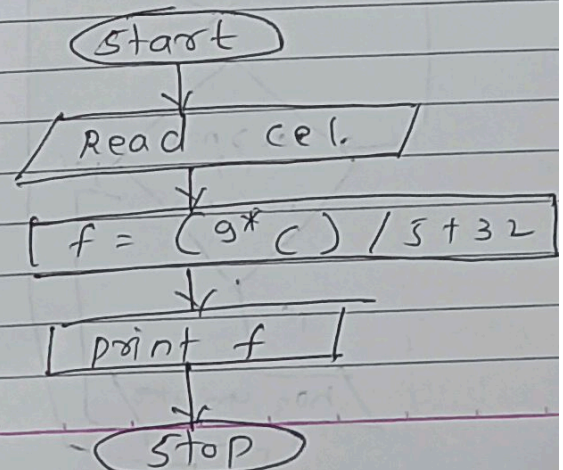 Start
Read cel.
f = (9* C) / 5 + 32
print f
Stop